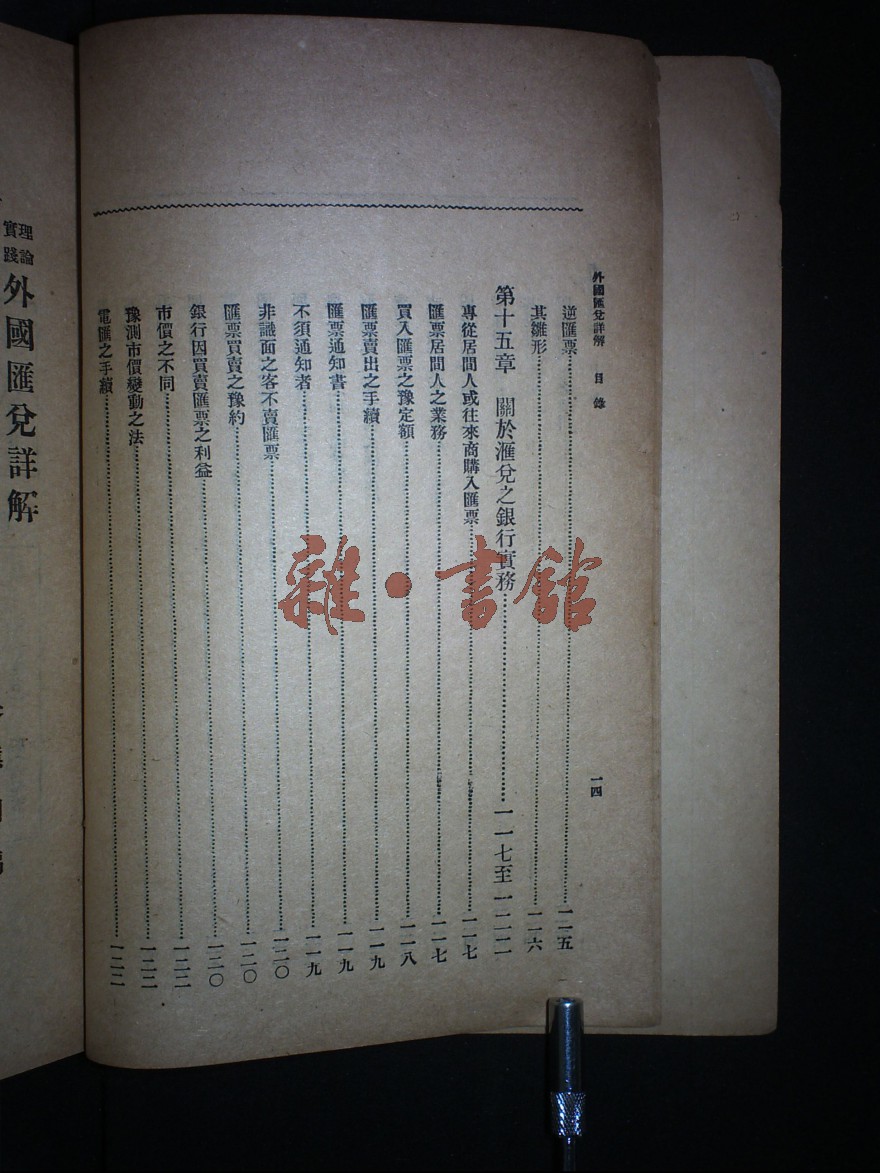 外國匯兌詳解 目錄 一四
逆匯票一一五
其雛形一一六
第十五章 關於滙兌之銀行實務一一七至一二二
專從居間人或往來商購入匯票一一七
匯票居間人之業務一一七
買入匯票之豫定額一一八
匯票賣出之手續一一九
匯票通知書一一九
不須通知者一一九
非識面之客不賣匯票一二〇
匯票買賣之豫約一二〇
銀行因買賣匯票之利益一二〇
市價之不同一二二
豫測市價變動之法一二二
電匯之手續一二二
理論實踐 外國匯兌詳解
雜·書館